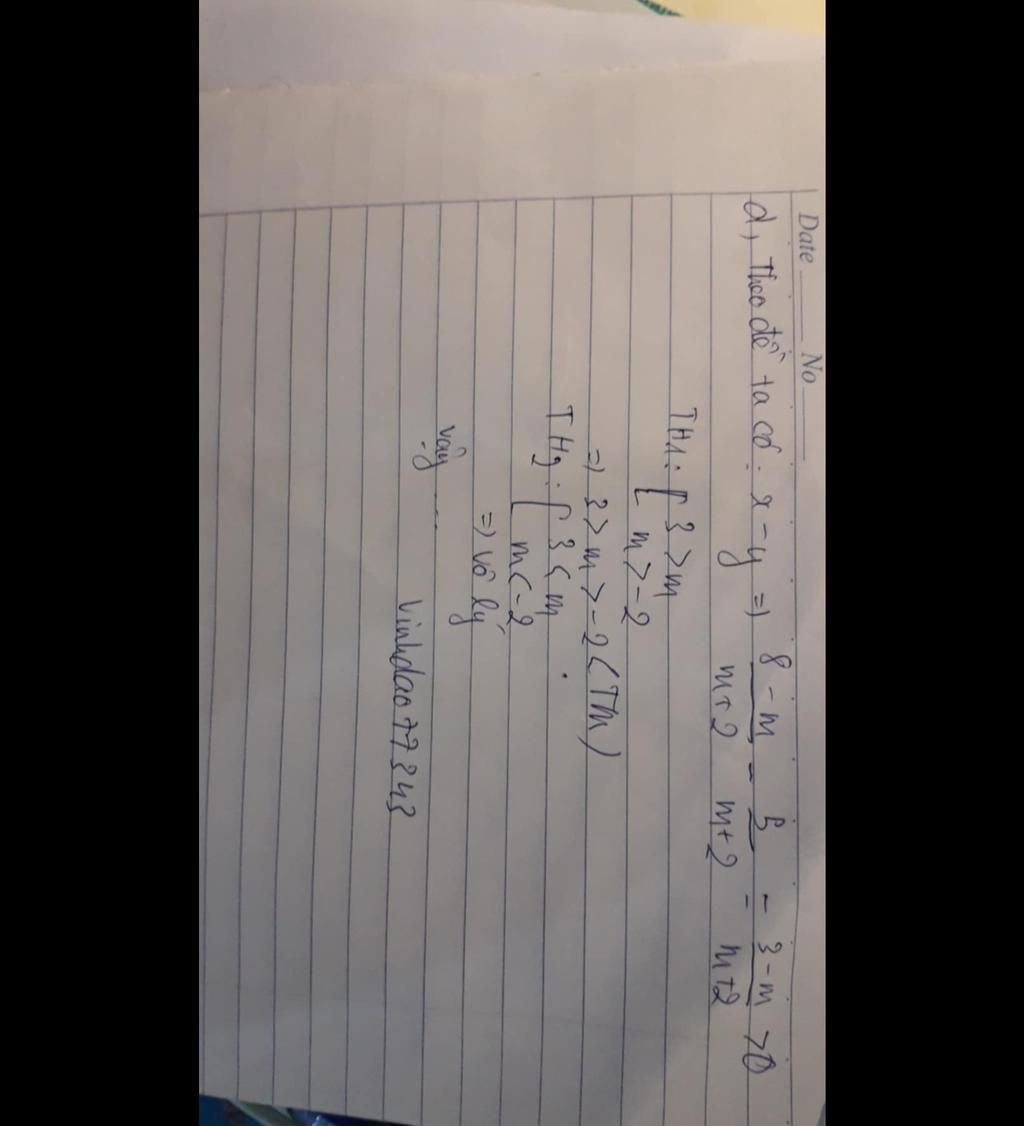 Date No
d, Theo đề ta có: x - y => 8-m/m+2 - 5/m+2 = 3-m/m+2 >0
TH1: [ 3 > m
[ m > -2
=> 3 > m > -2 (TM)
TH2: [ 3 < m
[ m < -2
=> vô lý
Vậy ...
Vinhdao77343